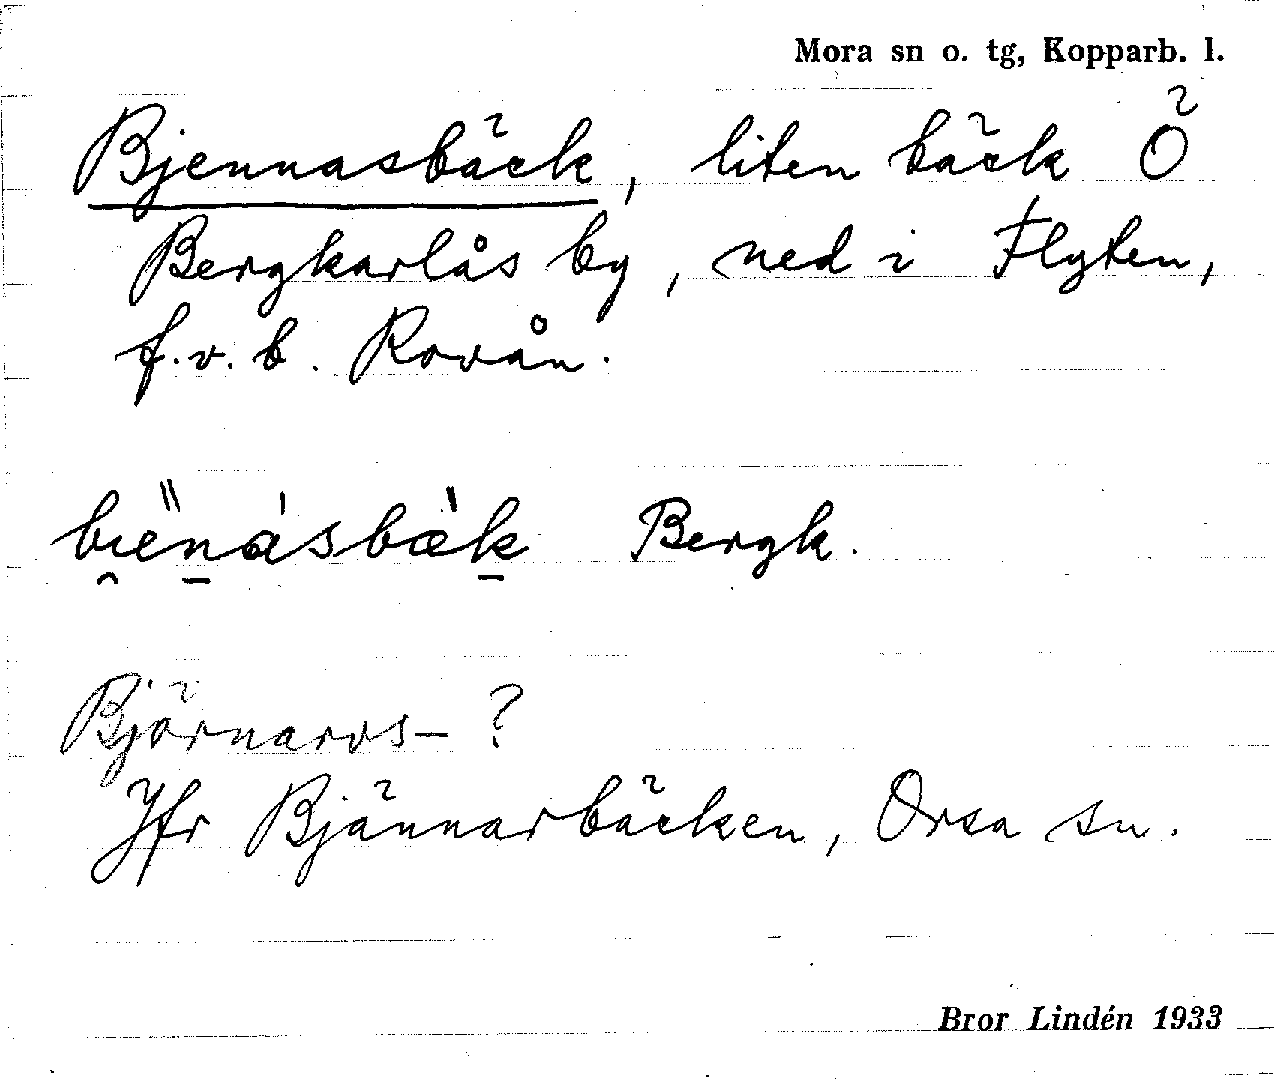 Mora sn o. tg, Kopparb. l.
Bjennasbäck, liten bäck Ö
Bergkarlås by, ned i Flyten,
f.v.b. Rovån.
Bergk.
Björnarvs- ?
Jfr Bjännarbäcken, Orsa sn.
Bror Lindén 1933